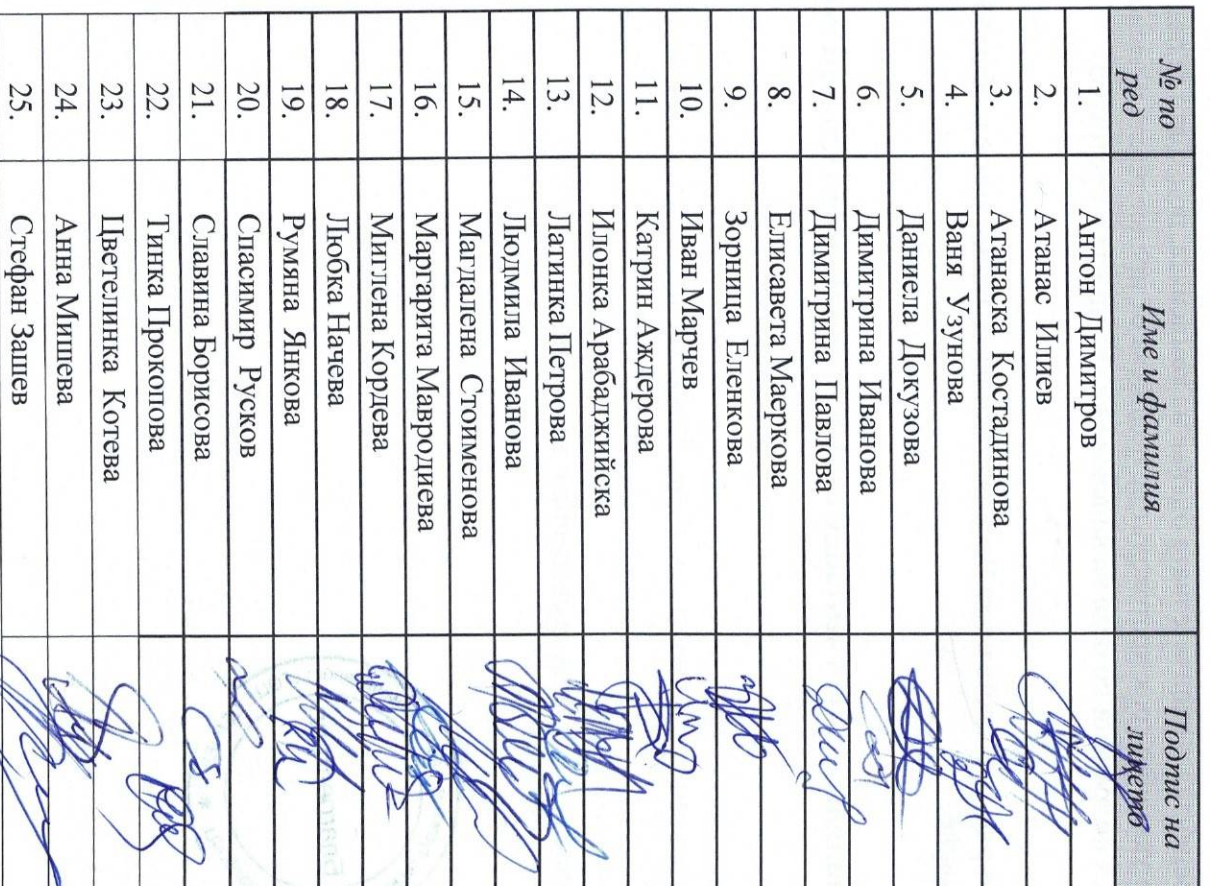 № по ред Име и фамилия Подпис на лицето
1. Антон Димитров
2. Атанас Илиев
3. Атанаска Костадинова
4. Ваня Узунова
5. Даниела Докузова
6. Димитрина Иванова
7. Димитрина Павлова
8. Елисавета Маеркова
9. Зорница Еленкова
10. Иван Марчев
11. Катрин Аждерова
12. Илонка Арабаджийска
13. Латинка Петрова
14. Людмила Иванова
15. Магдалена Стоименова
16. Маргарита Мавродиева
17. Миглена Кордева
18. Любка Начева
19. Румяна Янкова
20. Спасимир Русков
21. Славина Борисова
22. Тинка Прокопова
23. Цветелинка Котева
24. Анна Мишева
25. Стефан Зашев